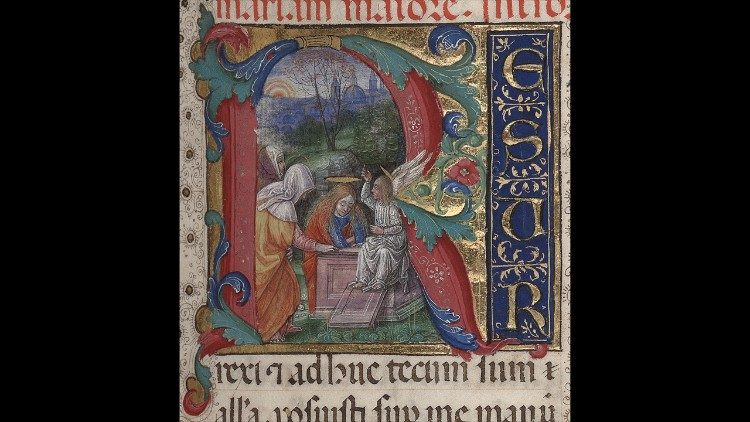 mariam maiore. Intro
R
E
S
U
R
rexi ⁊ adhuc tecum sum
all'a. posuisti sup me manū